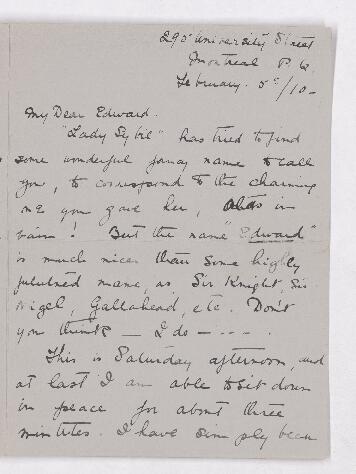 295 University Street
Montreal P.Q.
February. 5th/10-
My Dear Edward.
"Lady Sybil" has tried to find
some wonderful fancy name to call
you, to correspond to the charming
one you gave her, Alas in
vain! But the name "Edward"
is much nicer than some highly
name, as Sir Knight, Sir
Nigel, Gallahead, etc. Don't
you think — I do — - - - -
This is Saturday afternoon, and
at last I am able to sit down
in peace for about three
minutes. I have simply been